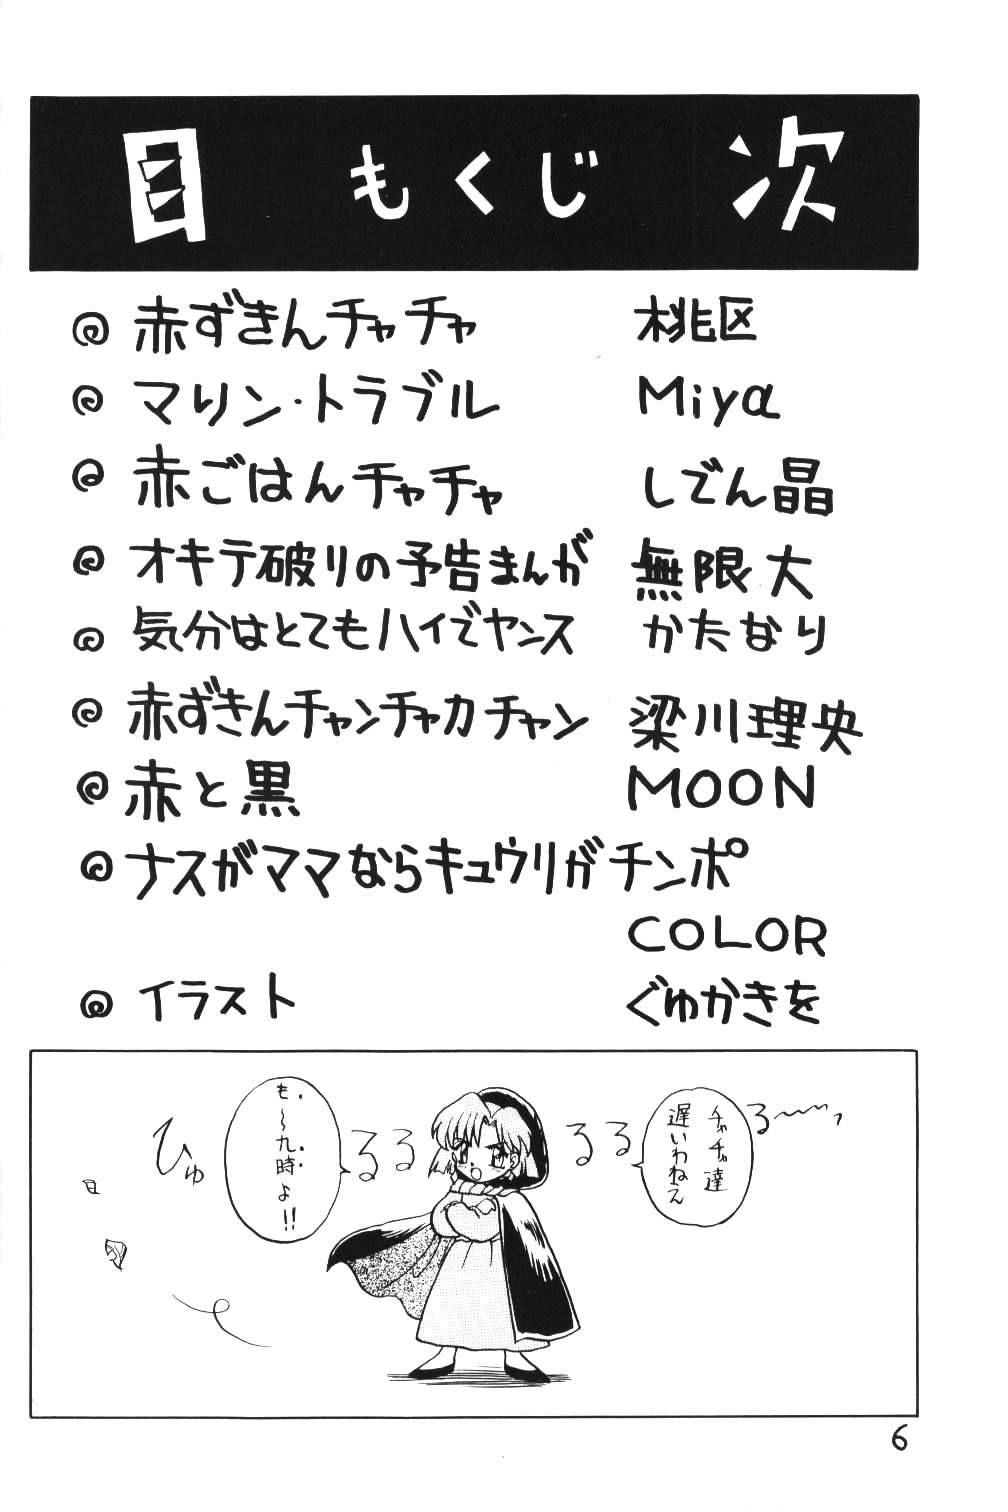 目 もくじ 次
赤ずきんチャチャ 桃区
マリン・トラブル Miya
赤ごはんチャチャ しでん晶
オキテ破りの予告まんが 無限大
気分はとてもハイでヤンス かたなり
赤ずきんチャンチャカチャン 梁川理央
赤と黒 MOON
ナスがママならキュウリがチンポ
COLOR
イラスト ぐゆかきを
チャチャ達
遅いわねえ
も〜九時よ!!
ひゅ
るる
るる
る〜〜っ
6